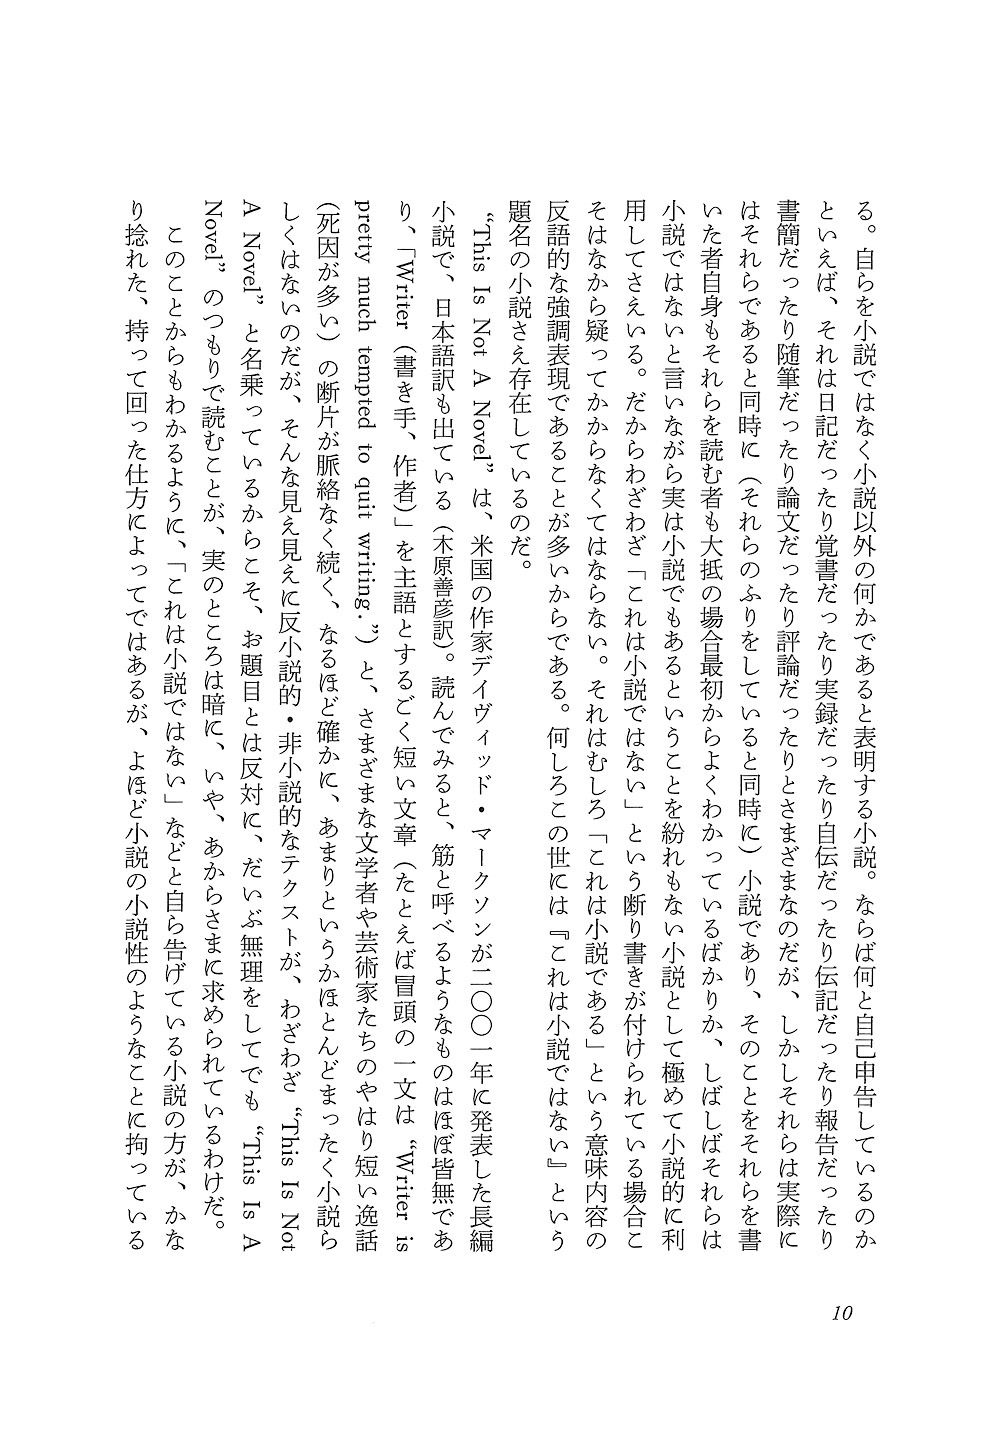 る。自らを小説ではなく小説以外の何かであると表明する小説。ならば何と自己申告しているのか
といえば、それは日記だったり覚書だったり実録だったり自伝だったり伝記だったり報告だったり
書簡だったり随筆だったり論文だったり評論だったりとさまざまなのだが、しかしそれらは実際に
はそれらであると同時に（それらのふりをしていると同時に）小説であり、そのことをそれらを書
いた者自身もそれらを読む者も大抵の場合最初からよくわかっているばかりか、しばしばそれらは
小説ではないと言いながら実は小説でもあるということを紛れもない小説として極めて小説的に利
用してさえいる。だからわざわざ「これは小説ではない」という断り書きが付けられている場合こ
そはなから疑ってかからなくてはならない。それはむしろ「これは小説である」という意味内容の
反語的な強調表現であることが多いからである。何しろこの世には『これは小説ではない』という
題名の小説さえ存在しているのだ。
“This Is Not A Novel” は、米国の作家デイヴィッド・マークソンが二〇〇一年に発表した長編
小説で、日本語訳も出ている（木原善彦訳）。読んでみると、筋と呼べるようなものはほぼ皆無であ
り、「Writer（書き手、作者）」を主語とするごく短い文章（たとえば冒頭の一文は “Writer is
pretty much tempted to quit writing.”）と、さまざまな文学者や芸術家たちのやはり短い逸話
（死因が多い）の断片が脈絡なく続く、なるほど確かに、あまりというかほとんどまったく小説ら
しくはないのだが、そんな見え見えに反小説的・非小説的なテクストが、わざわざ “This Is Not
A Novel” と名乗っているからこそ、お題目とは反対に、だいぶ無理をしてでも “This Is A
Novel” のつもりで読むことが、実のところは暗に、いや、あからさまに求められているわけだ。
このことからもわかるように、「これは小説ではない」などと自ら告げている小説の方が、かな
り捻れた、持って回った仕方によってではあるが、よほど小説の小説性のようなことに拘っている
10